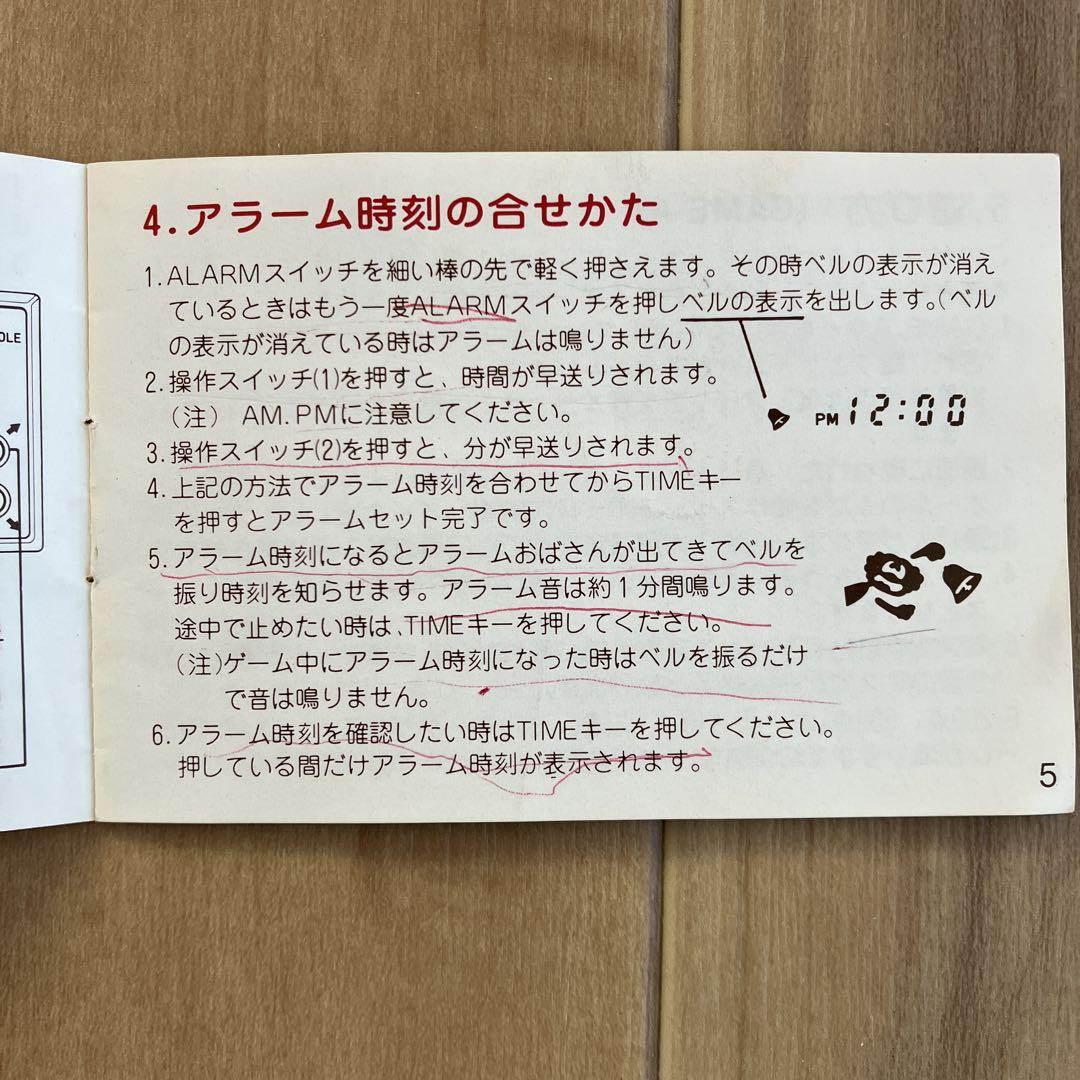 OLE
4.アラーム時刻の合せかた
1.ALARMスイッチを細い棒の先で軽く押さえます。その時ベルの表示が消え
ているときはもう一度ALARMスイッチを押しベルの表示を出します。(ベル
の表示が消えている時はアラームは鳴りません)
2.操作スイッチ(1)を押すと、時間が早送りされます。
(注) AM.PMに注意してください。
PM12:00
3.操作スイッチ(2)を押すと、分が早送りされます。
4.上記の方法でアラーム時刻を合わせてからTIMEキー
を押すとアラームセット完了です。
5.アラーム時刻になるとアラームおばさんが出てきてベルを
振り時刻を知らせます。アラーム音は約1分間鳴ります。
途中で止めたい時は、TIMEキーを押してください。
(注)ゲーム中にアラーム時刻になった時はベルを振るだけ
で音は鳴りません。
6.アラーム時刻を確認したい時はTIMEキーを押してください。
押している間だけアラーム時刻が表示されます。
5